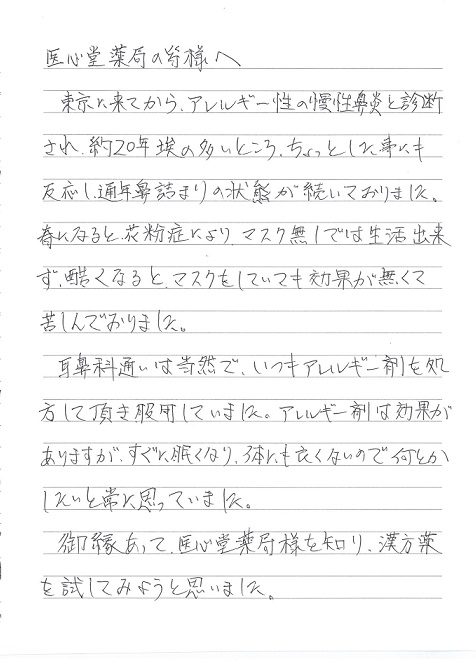 医心堂薬局の皆様へ
東京に来てから、アレルギー性の慢性鼻炎と診断
され、約20年埃の多いところ、ちょっとした事にも
反応し、通年鼻詰まりの状態が続いておりました。
春になると、花粉症により、マスク無しでは生活出来
ず、酷くなると、マスクをしていても効果が無くて
苦しんでおりました。
耳鼻科通いは当然で、いつもアレルギー剤を処
方して頂き服用していました。アレルギー剤は効果が
ありますが、すぐに眠くなり、体にも良くないので何とか
したいと常に思っていました。
御縁あって、医心堂薬局様を知り、漢方薬
を試してみようと思いました。